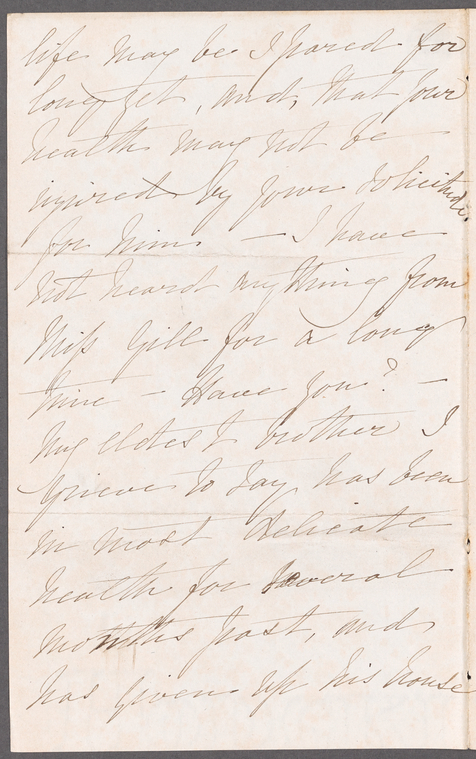 life may be spared for
long yet, and, that your
health may not be
injured by your solicitude
for him — I have
not heard anything from
Miss Gill for a long
time — Have you? —
My eldest brother I
grieve to say has been
in most delicate
health for several
months past, and
has given up his house